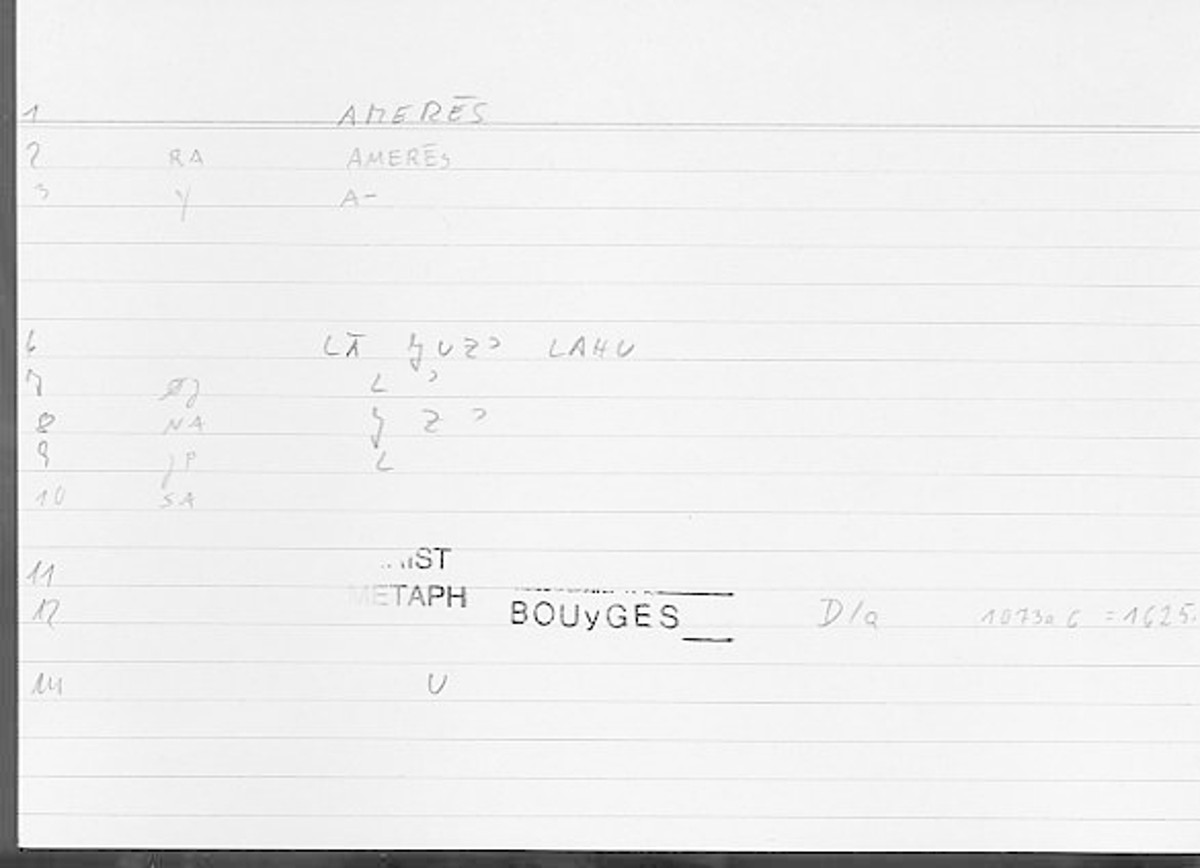 1 AMERĒS
2 RA AMERĒS
3 Y A-
6 LĀ ǦUZʾ LAHU
7 L ʾ
8 NA Ǧ Z ʾ
9 JP L
10 SA
11 IST
12 METAPH BOUyGES D/a 1073a6 =1625.
14 U